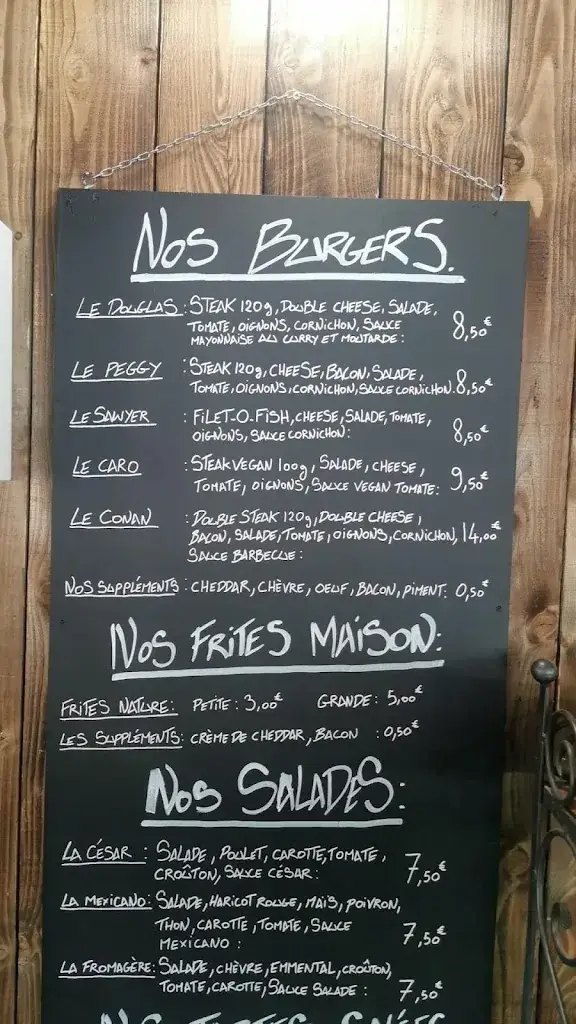 Nos Burgers.
Le Douglas : Steak 120g, Double cheese, Salade,
Tomate, oignons, cornichon, Sauce
mayonnaise au curry et moutarde : 8,50€
Le Peggy : Steak 120g, cheese, Bacon, Salade,
Tomate, oignons, cornichon, Sauce cornichon. 8,50€
Le Sawyer : Filet-o-Fish, cheese, Salade, Tomate,
oignons, Sauce cornichon : 8,50€
Le Caro : Steak vegan 100g, Salade, cheese,
Tomate, oignons, Sauce vegan tomate : 9,50€
Le Conan : Double Steak 120g, Double cheese,
Bacon, Salade, Tomate, oignons, cornichon, 14,00€
Sauce Barbecue :
Nos Suppléments : cheddar, chèvre, oeuf, bacon, piment : 0,50€
Nos Frites Maison :
Frites Nature : Petite : 3,00€ Grande : 5,00€
Les Suppléments : crème de cheddar, bacon : 0,50€
Nos Salades :
La César : Salade, Poulet, carotte, tomate,
croûton, sauce césar : 7,50€
La Mexicano : Salade, haricot rouge, maïs, poivron,
thon, carotte, tomate, sauce
mexicano : 7,50€
La Fromagère : Salade, chèvre, emmental, croûton,
tomate, carotte, sauce salade : 7,50€
Nos